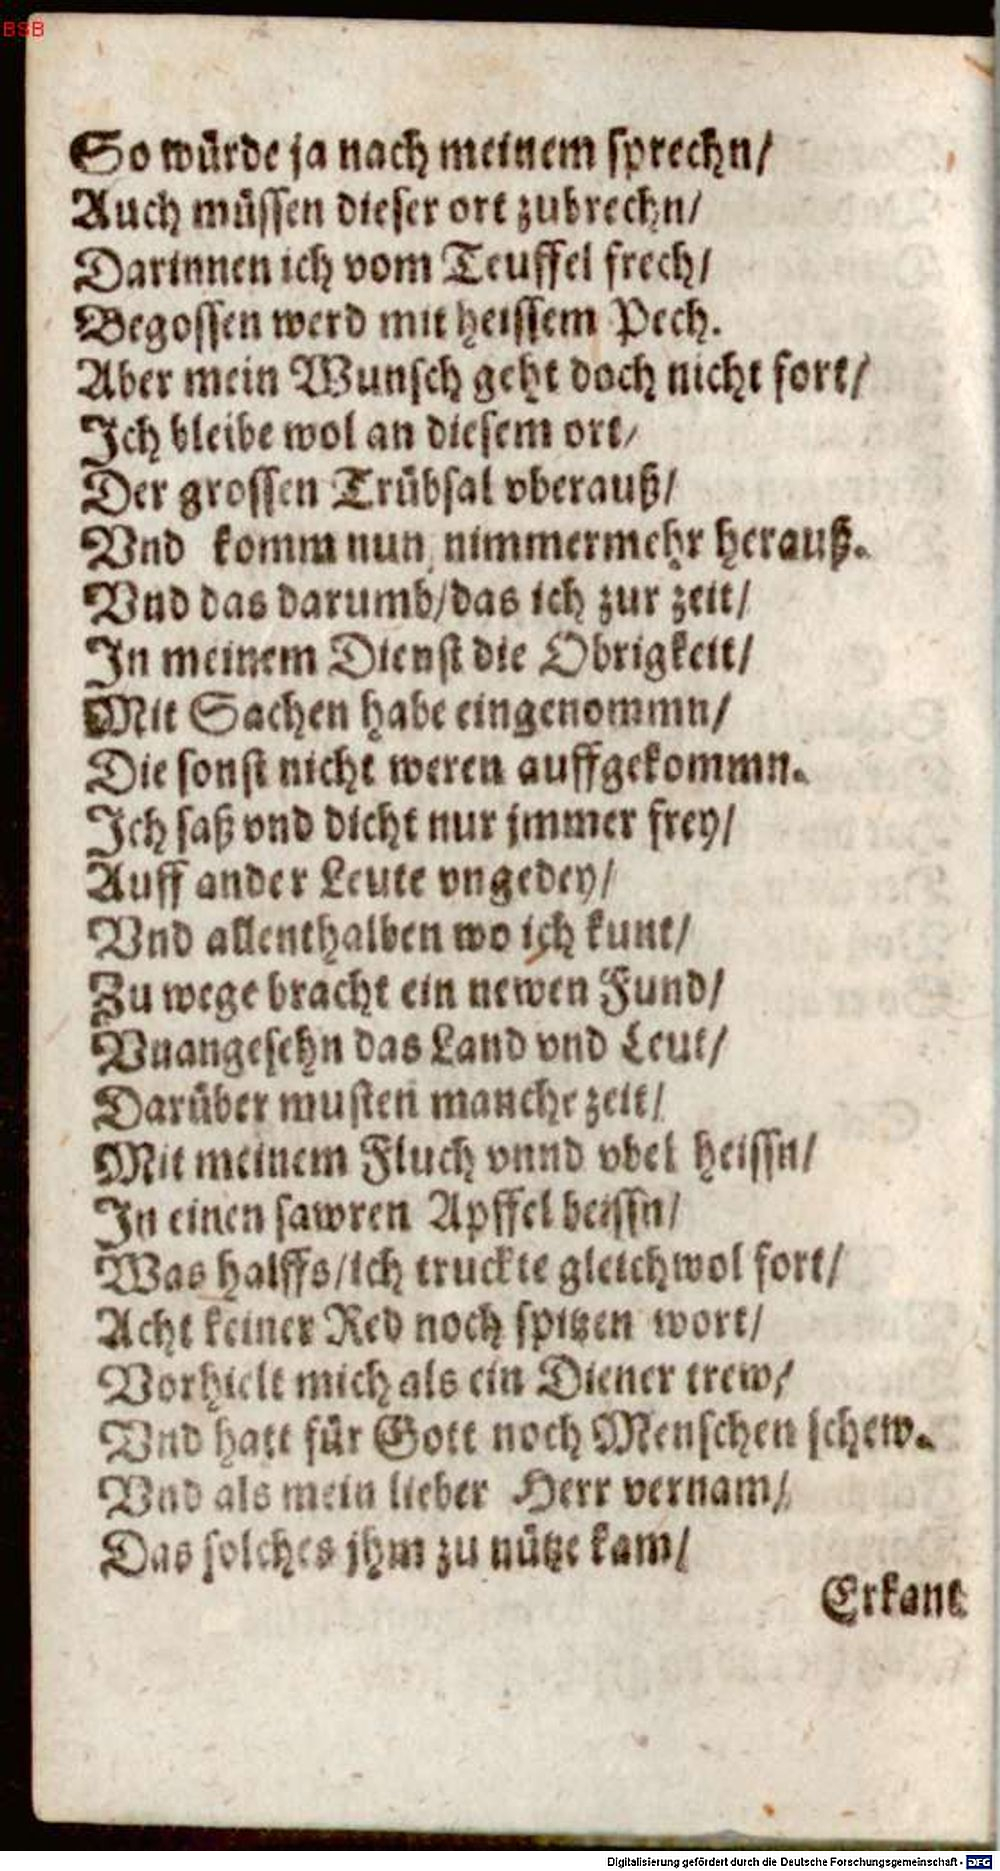 BSB
So würde ja nach meinem sprechn/
Auch müssen dieser ort zubrechn/
Darinnen ich vom Teuffel frech/
Begossen werd mit heissem Pech.
Aber mein Wunsch geht doch nicht fort/
Ich bleibe wol an diesem ort/
Der grossen Trübsal vberauß/
Vnd komm nun nimmermehr herauß.
Vnd das darumb/das ich zur zeit/
In meinem Dienst die Obrigkeit/
Mit Sachen habe eingenommn/
Die sonst nicht weren auffgekommn.
Ich saß vnd dicht nur jmmer frey/
Auff ander Leute vngedey/
Vnd allenthalben wo ich kunt/
Zu wege bracht ein newen Fund/
Vnangesehn das Land vnd Leut/
Darüber musten manche zeit/
Mit meinem Fluch vnnd vbel heissn/
In einen sawren Apffel beissn/
Was halffs/ich truckte gleichwol fort/
Acht keiner Red noch spitzen wort/
Vorhielt mich als ein Diener trew/
Vnd hatt für Gott noch Menschen schew.
Vnd als mein lieber Herr vernam/
Das solches jhm zu nütze kam/
Erkant
Digitalisierung gefördert durch die Deutsche Forschungsgemeinschaft - DFG